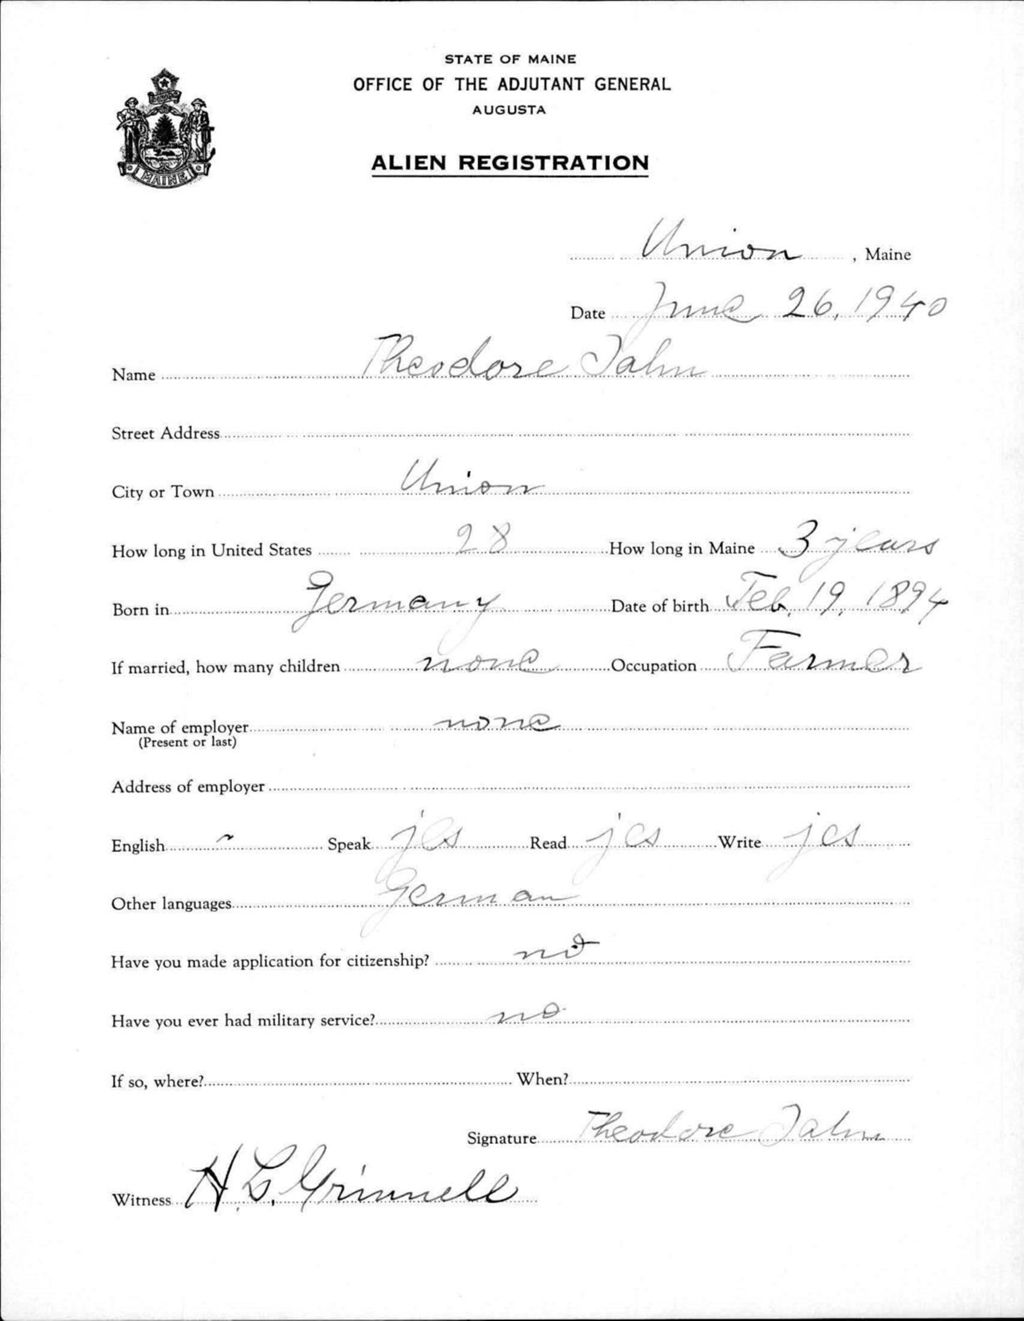 STATE OF MAINE
OFFICE OF THE ADJUTANT GENERAL
AUGUSTA
ALIEN REGISTRATION
MAINE
Union, Maine
Date June 26, 1940
Name Theodore Jahn
Street Address
City or Town Union
How long in United States 28 How long in Maine 3 years
Born in Germany Date of birth Feb. 19, 1894
If married, how many children none Occupation Farmer
Name of employer none
(Present or last)
Address of employer
English Speak yes Read yes Write yes
Other languages German
Have you made application for citizenship? no
Have you ever had military service? no
If so, where? When?
Signature Theodore Jahn
Witness H. L. Grinnell